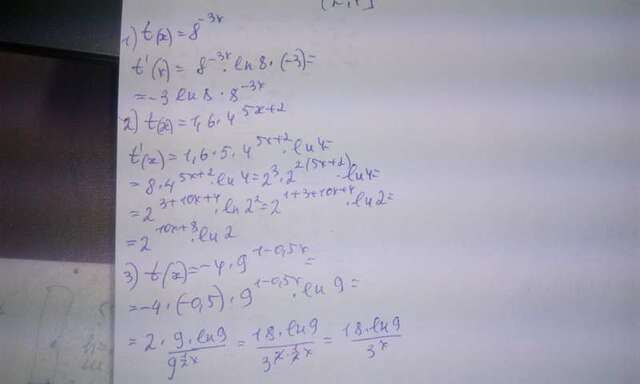 1) f(x) = 8^{-3x}
f'(x) = 8^{-3x} · ln 8 · (-3) =
= -3 ln 8 · 8^{-3x}
2) f(x) = 1,6 · 4^{5x+2}
f'(x) = 1,6 · 5 · 4^{5x+2} · ln 4 =
= 8 · 4^{5x+2} · ln 4 = 2^3 · 2^{2(5x+2)} · ln 4 =
= 2^{3+10x+4} · ln 2^2 = 2^{1+3+10x+4} · ln 2 =
= 2^{10x+8} · ln 2
3) f(x) = -4 · 9^{1-0,5x} =
= -4 · (-0,5) · 9^{1-0,5x} · ln 9 =
= 2 · \frac{9 · ln 9}{9^{\frac{1}{2}x}} = \frac{18 · ln 9}{3^{2·\frac{1}{2}x}} = \frac{18 · ln 9}{3^x}